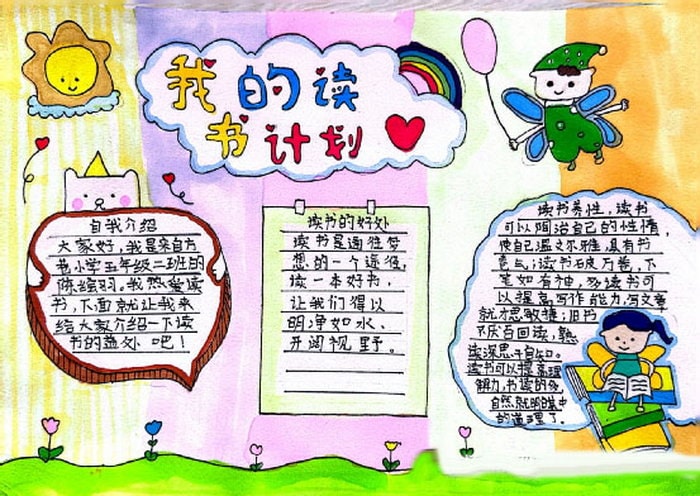 我的读
书计划
自我介绍
大家好，我是来自方
巷小学五年级二班的
陈绘羽。我热爱读
书，下面就让我来
给大家介绍一下读
书的益处吧！
读书的好处
读书是通往梦
想的一个途径，
读一本好书，
让我们得以
明净如水，
开阔视野。
读书养性，读书
可以陶冶自己的性情，
使自己温文尔雅，具有书
卷气；读书破万卷，下
笔如有神，多读书可
以提高写作能力，写文章
就才思敏捷；旧书
不厌百回读，熟
读深思子自知。
读书可以提高理
解能力，书读的多，
自然就明白其中
的道理了。